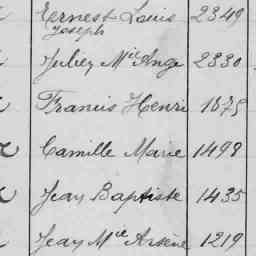 Ernest Louis 2349
Joseph
Juliey Mie Ange 2330
Francis Henri 1875
Camille Marie 1498
Jeay Baptiste 1435
Jeay Mce Arsène 1219